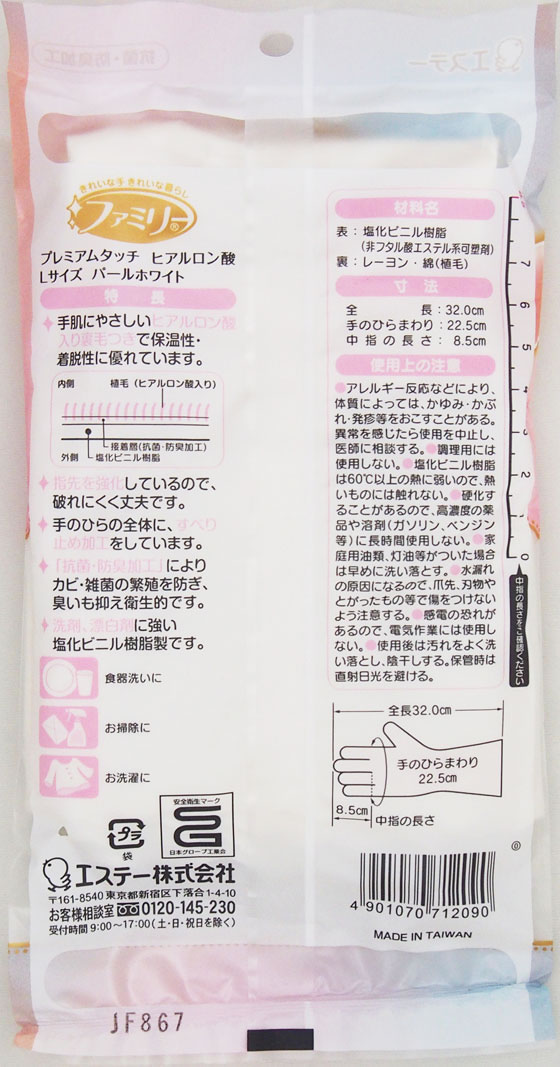 抗菌・防臭加工
エステー
きれいな手 きれいな暮らし
ファミリー®
プレミアムタッチ ヒアルロン酸
Lサイズ パールホワイト
特長
手肌にやさしいヒアルロン酸
入り裏毛つきで保温性・
着脱性に優れています。
内側 植毛(ヒアルロン酸入り)
接着層(抗菌・防臭加工)
外側 塩化ビニル樹脂
指先を強化しているので、
破れにくく丈夫です。
手のひらの全体に、すべり
止め加工をしています。
「抗菌・防臭加工」により
カビ・雑菌の繁殖を防ぎ、
臭いも抑え衛生的です。
洗剤、漂白剤に強い
塩化ビニル樹脂製です。
食器洗いに
お掃除に
お洗濯に
プラ
袋
安全衛生マーク
SG
日本グローブ工業会
エステー株式会社
〒161-8540 東京都新宿区下落合1-4-10
お客様相談室 0120-145-230
受付時間 9:00〜17:00(土・日・祝日を除く)
JF867
材料名
表:塩化ビニル樹脂
(非フタル酸エステル系可塑剤)
裏:レーヨン・綿(植毛)
寸法
全長:32.0cm
手のひらまわり:22.5cm
中指の長さ:8.5cm
使用上の注意
●アレルギー反応などにより、
体質によっては、かゆみ・かぶ
れ・発疹等をおこすことがある。
異常を感じたら使用を中止し、
医師に相談する。●調理用には
使用しない。●塩化ビニル樹脂
は60℃以上の熱に弱いので、熱
いものには触れない。●硬化す
ることがあるので、高濃度の薬
品や溶剤(ガソリン、ベンジン
等)に長時間使用しない。●家
庭用油類、灯油等がついた場合
は早めに洗い落とす。●水漏れ
の原因になるので、爪先、刃物や
とがったもの等で傷をつけない
よう注意する。●感電の恐れが
あるので、電気作業には使用し
ない。●使用後は汚れをよく洗
い落とし、陰干しする。保管時は
直射日光を避ける。
7
6
5
4
3
2
1
0
中指の長さをご確認ください
全長32.0cm
手のひらまわり
22.5cm
8.5cm
中指の長さ
4 901070 712090
MADE IN TAIWAN